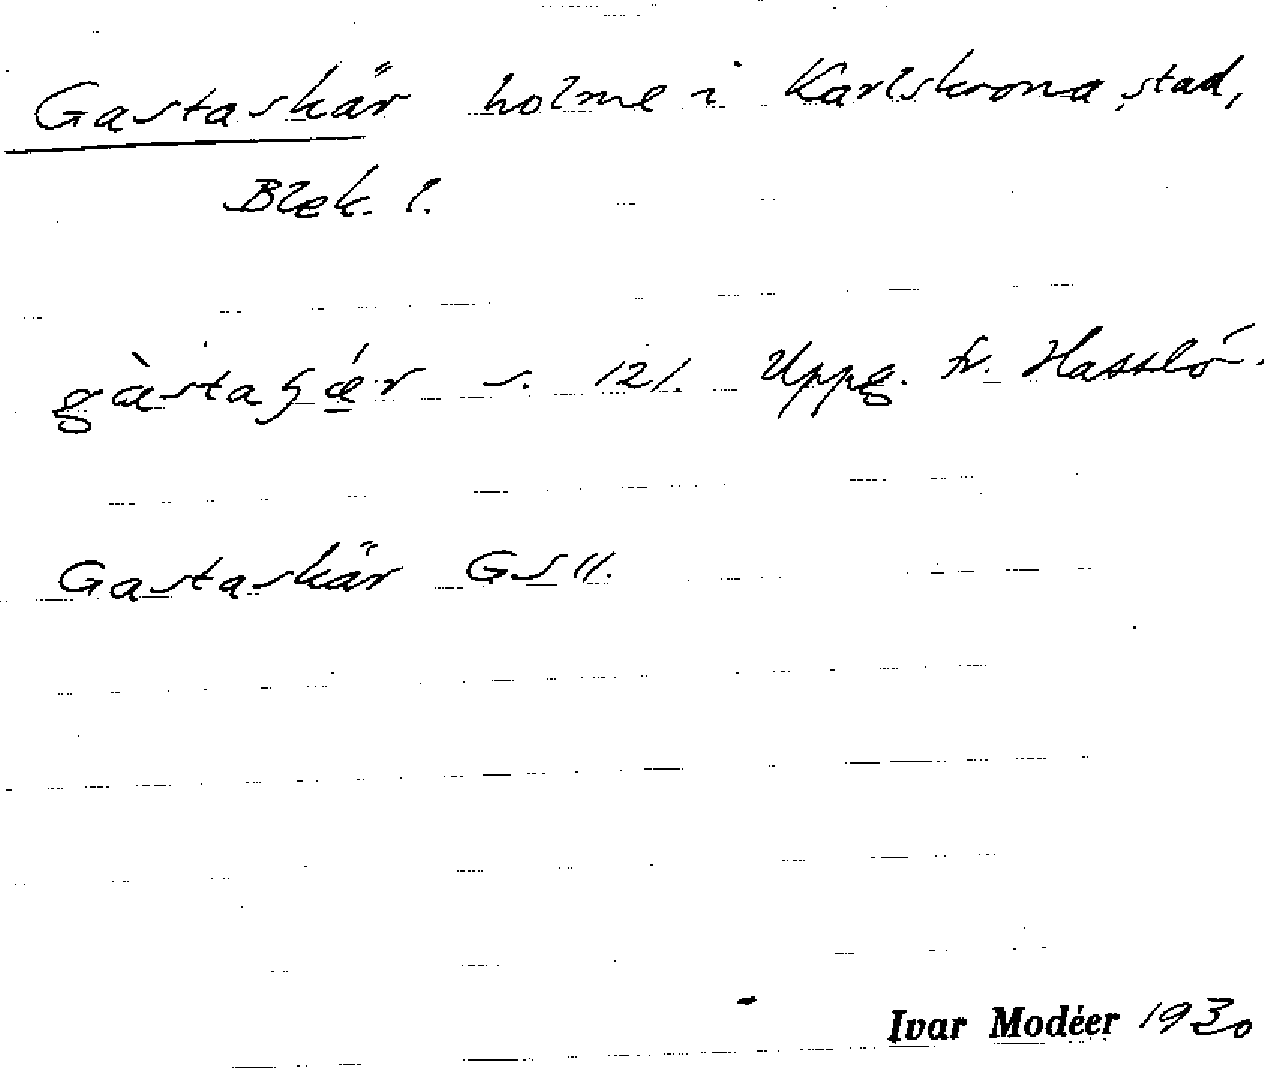 Gastaskär holme i Karlskrona stad,
Blek. l.
gàstaʂǽr s. 121. Uppg. fr. Hasslö.
Gastaskär GS 11.
Ivar Modéer 1930